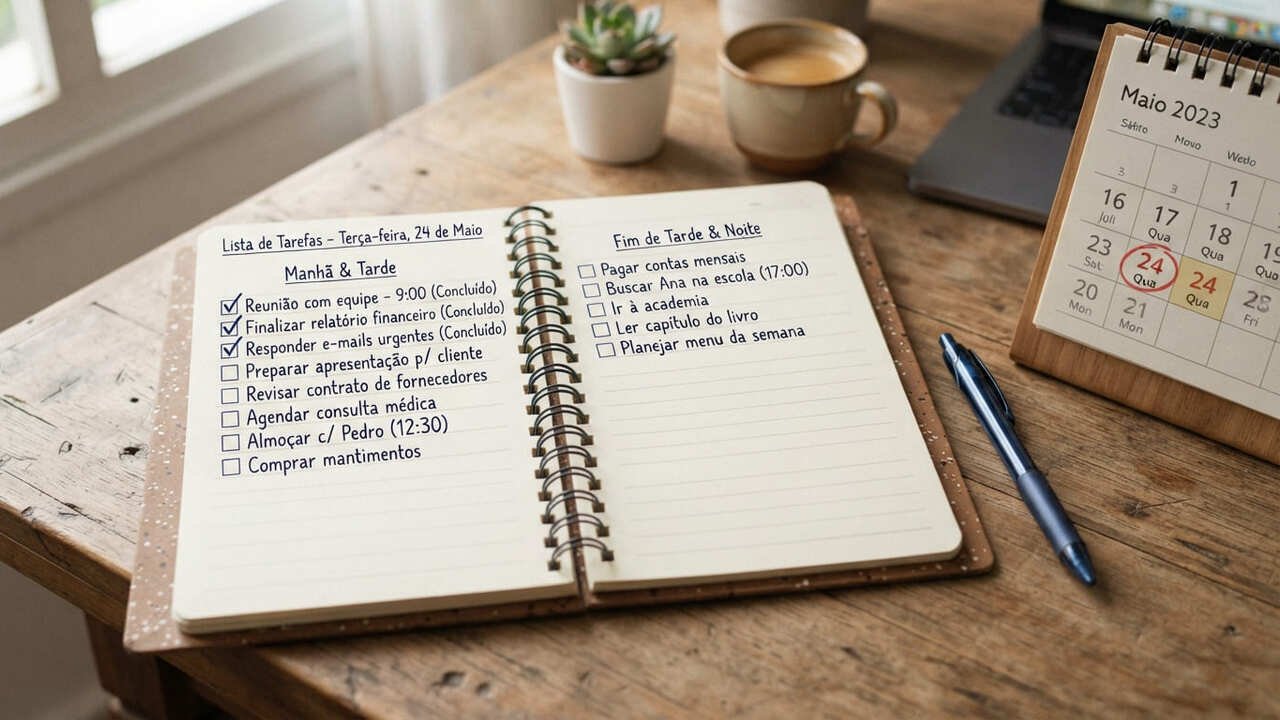 Lista de Tarefas – Terça-feira, 24 de Maio
Manhã & Tarde
Reunião com equipe – 9:00 (Concluído)
Finalizar relatório financeiro (Concluído)
Responder e-mails urgentes (Concluído)
Preparar apresentação p/ cliente
Revisar contrato de fornecedores
Agendar consulta médica
Almoçar c/ Pedro (12:30)
Comprar mantimentos
Fim de Tarde & Noite
Pagar contas mensais
Buscar Ana na escola (17:00)
Ir à academia
Ler capítulo do livro
Planejar menu da semana
Maio 2023
Wedo
3 3 1
1
16 17 18 19
Juli Qua Qua
23 24 24 28
Sat Qua Qua Fri
20 21
Mon Mon